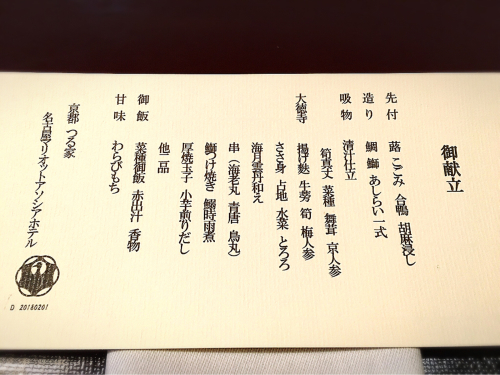 御献立
先付 蕗 こごみ 合鴨 胡麻浸し
造り 鯛 鰤 あしらい一式
吸物 清汁仕立
筍真丈 菜種 舞茸 京人参
大徳寺 揚げ麩 牛蒡 筍 梅人参
ささ身 占地 水菜 とろろ
海月雲丹和え
串(海老丸 青唐 鳥丸)
鰤つけ焼き 鰯時雨煮
厚焼玉子 小芋煎りだし
他二品
御飯 菜種御飯 赤出汁 香物
甘味 わらびもち
京都 つる家
名古屋マリオットアソシアホテル
D 20180201